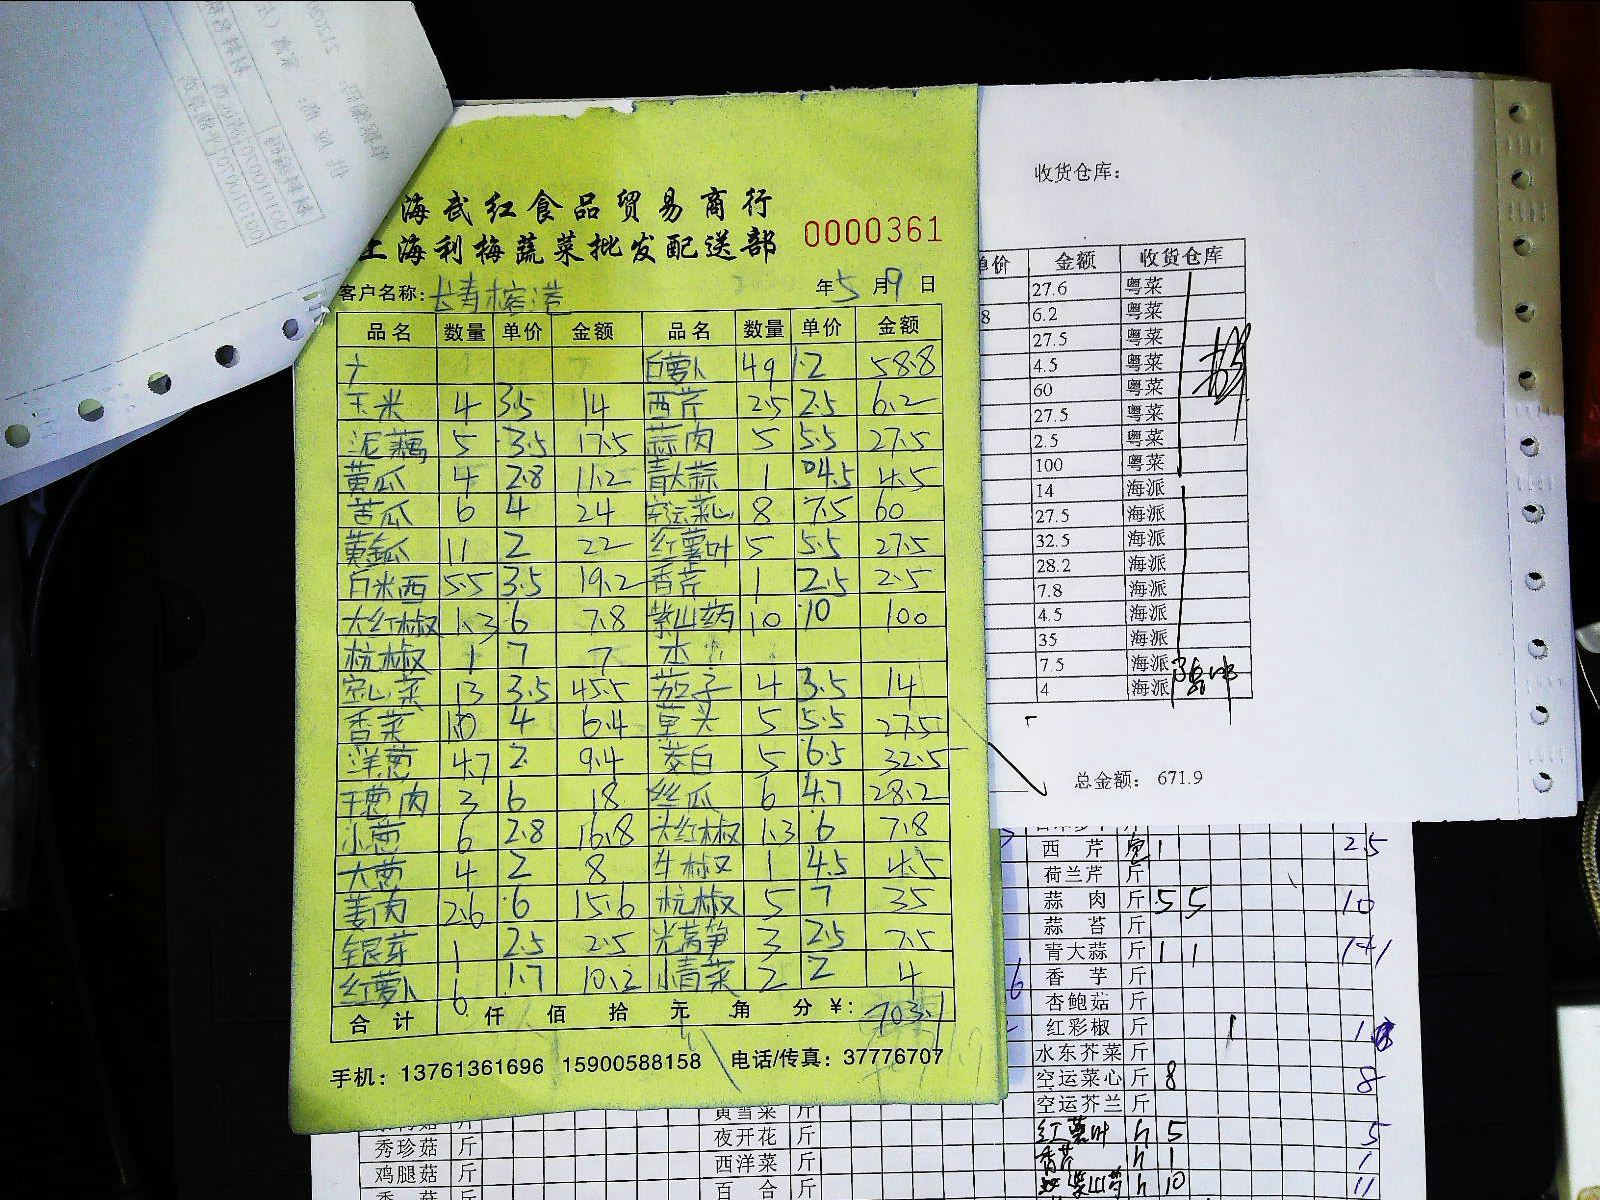 海武红食品贸易商行
上海利梅蔬菜批发配送部
0000361
客户名称: 年5月9日
品名 数量 单价 金额 品名 数量 单价 金额
白萝卜 49 1.2 58.8
玉米 4 3.5 14 西芹 2.5 2.5 6.2
泥藕 5 3.5 17.5 蒜肉 5 5.5 27.5
黄瓜 4 2.8 11.2 青大蒜 1 4.5 4.5
苦瓜 6 4 24 空运菜心 8 7.5 60
11 2 22 红薯叶 5 5.5 27.5
白米西 5.5 3.5 19.2 香芹 1 2.5 2.5
大红椒 1.3 6 7.8 紫山药 10 10 100
杭椒 1 7 7
空心菜 13 3.5 45.5 茄子 4 3.5 14
香菜 4 6.4 草头 5 5.5 27.5
洋葱 4.7 2 9.4 茭白 5 6.5 32.5
干葱肉 3 6 18 丝瓜 6 4.7 28.2
小葱 6 2.8 16.8 大红椒 1.3 6 7.8
大葱 4 2 8 牛椒 1 4.5 4.5
姜肉 2.6 6 15.6 杭椒 5 7 35
银芽 1 2.5 2.5 光莴笋 3 2.5 7.5
红萝卜 6 1.7 10.2 小青菜 2 2 4
合计 仟 佰 拾 元 角 分 ¥: 703.1
手机: 13761361696 15900588158 电话/传真: 37776707
收货仓库:
单价 金额 收货仓库
27.6 粤菜
8 6.2 粤菜
27.5 粤菜
4.5 粤菜
60 粤菜
27.5 粤菜
2.5 粤菜
100 粤菜
14 海派
27.5 海派
32.5 海派
28.2 海派
7.8 海派
4.5 海派
35 海派
7.5 海派
4 海派
总金额: 671.9
西芹 1 2.5
荷兰芹 斤
蒜肉 斤 5 5 10
蒜苔 斤
青大蒜 斤 1 1 1+1
香芋 斤
杏鲍菇 斤
红彩椒 斤 1 1
水东芥菜 斤
空运菜心 斤 8 8
空运芥兰 斤
红薯叶 5 5
香芹 1 1
紫山药 10 11
黄雪菜 斤
秀珍菇 斤 夜开花 斤
鸡腿菇 斤 西洋菜 斤
百合 斤